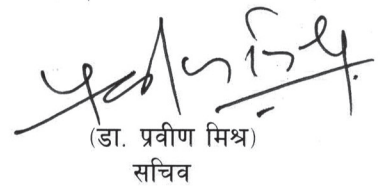 (डा. प्रवीण मिश्र)
सचिव